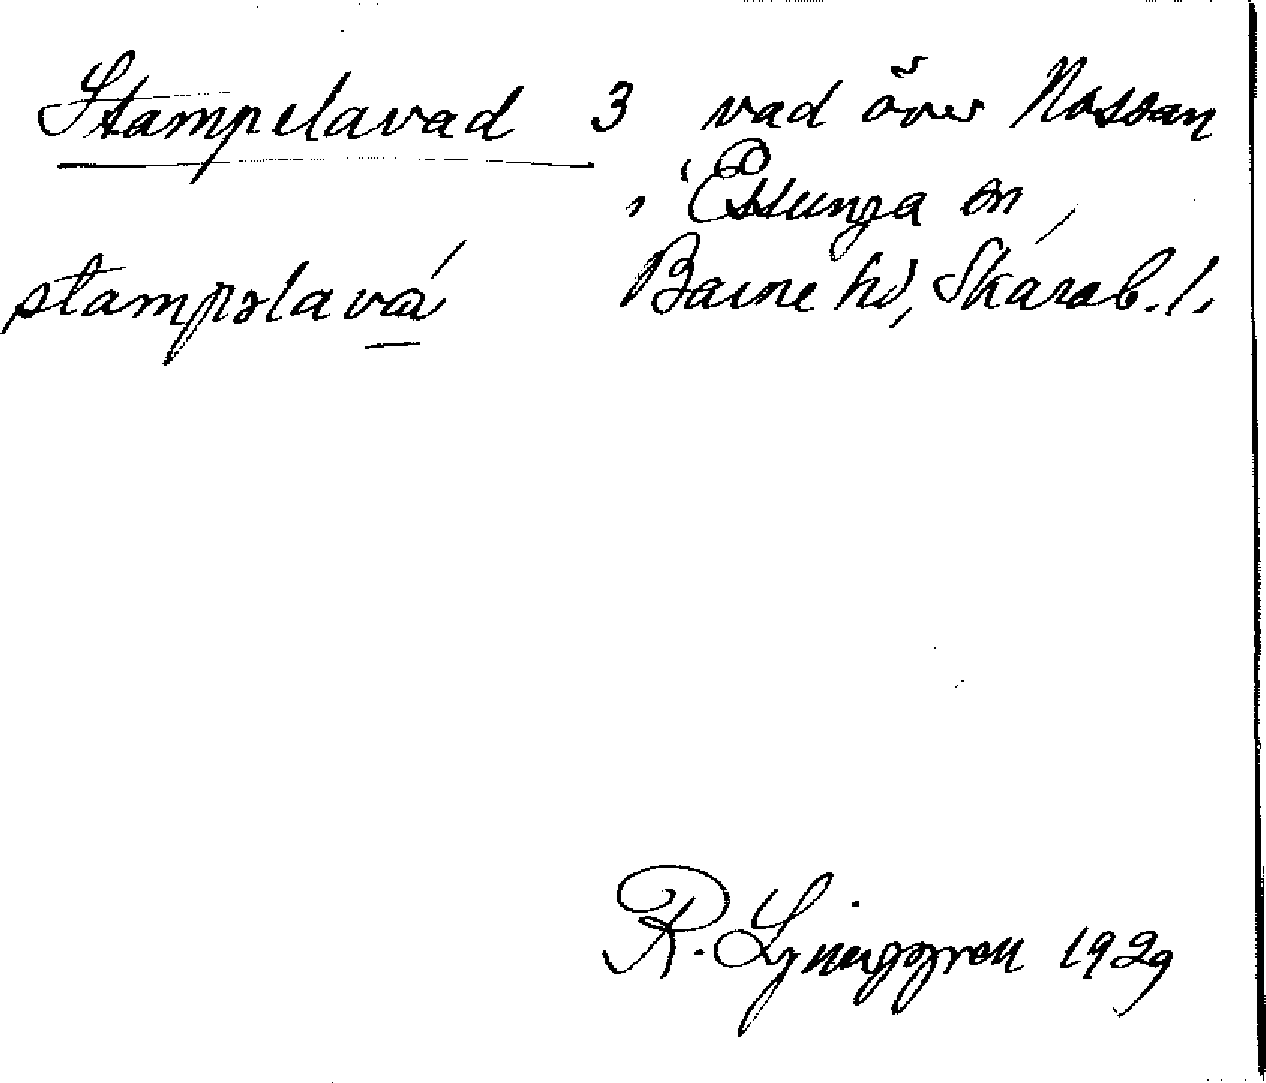 Stampelavad 3 vad över Nossan
i Essunga sn,
stampəlava Barne hd, Skarab. l.
R. Ljunggren 1929